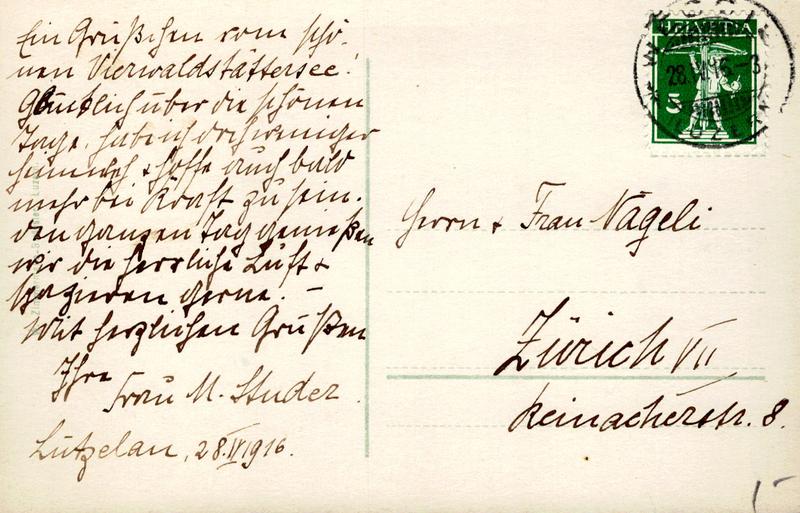 Ein Grüßchen vom schö-
nen Vierwaldstättersee!
Glücklich über die schönen
Tage, hab ich doch weniger
Heimweh & hoffe auch bald
mehr bei Kraft zu sein.
den ganzen Tag genießen
wir die herrliche Luft &
spazieren gerne. –
Mit herzlichen Grüßen
Ihre
Frau M. Studer.
Lützelau, 28.IV 1916.
HELVETIA
5
WEGGIS
28.IV.16.–3
LUZERN
Herrn & Frau Nägeli
Zürich VII
Reinacherstr. 8.